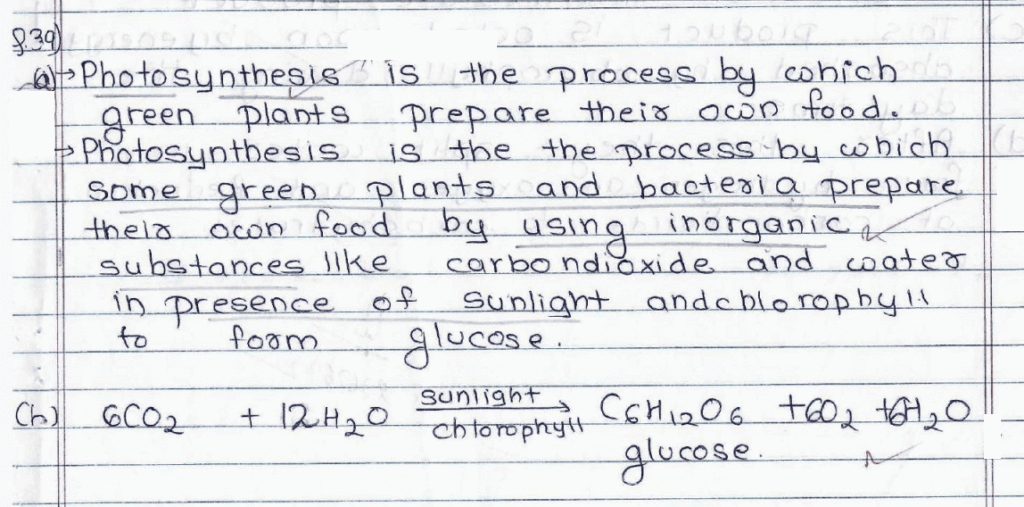 Q.39)
a) → Photosynthesis" is the process by which
green plants prepare their own food.
→ Photosynthesis is the the process by which
some green plants and bacteria prepare
their own food by using inorganic
substances like carbondioxide and water
in presence of sunlight and chlorophyll
to form glucose.
(b) 6CO₂ + 12H₂O sunlight → chlorophyll C6H12O6 + 6O₂ + 6H₂O
glucose.